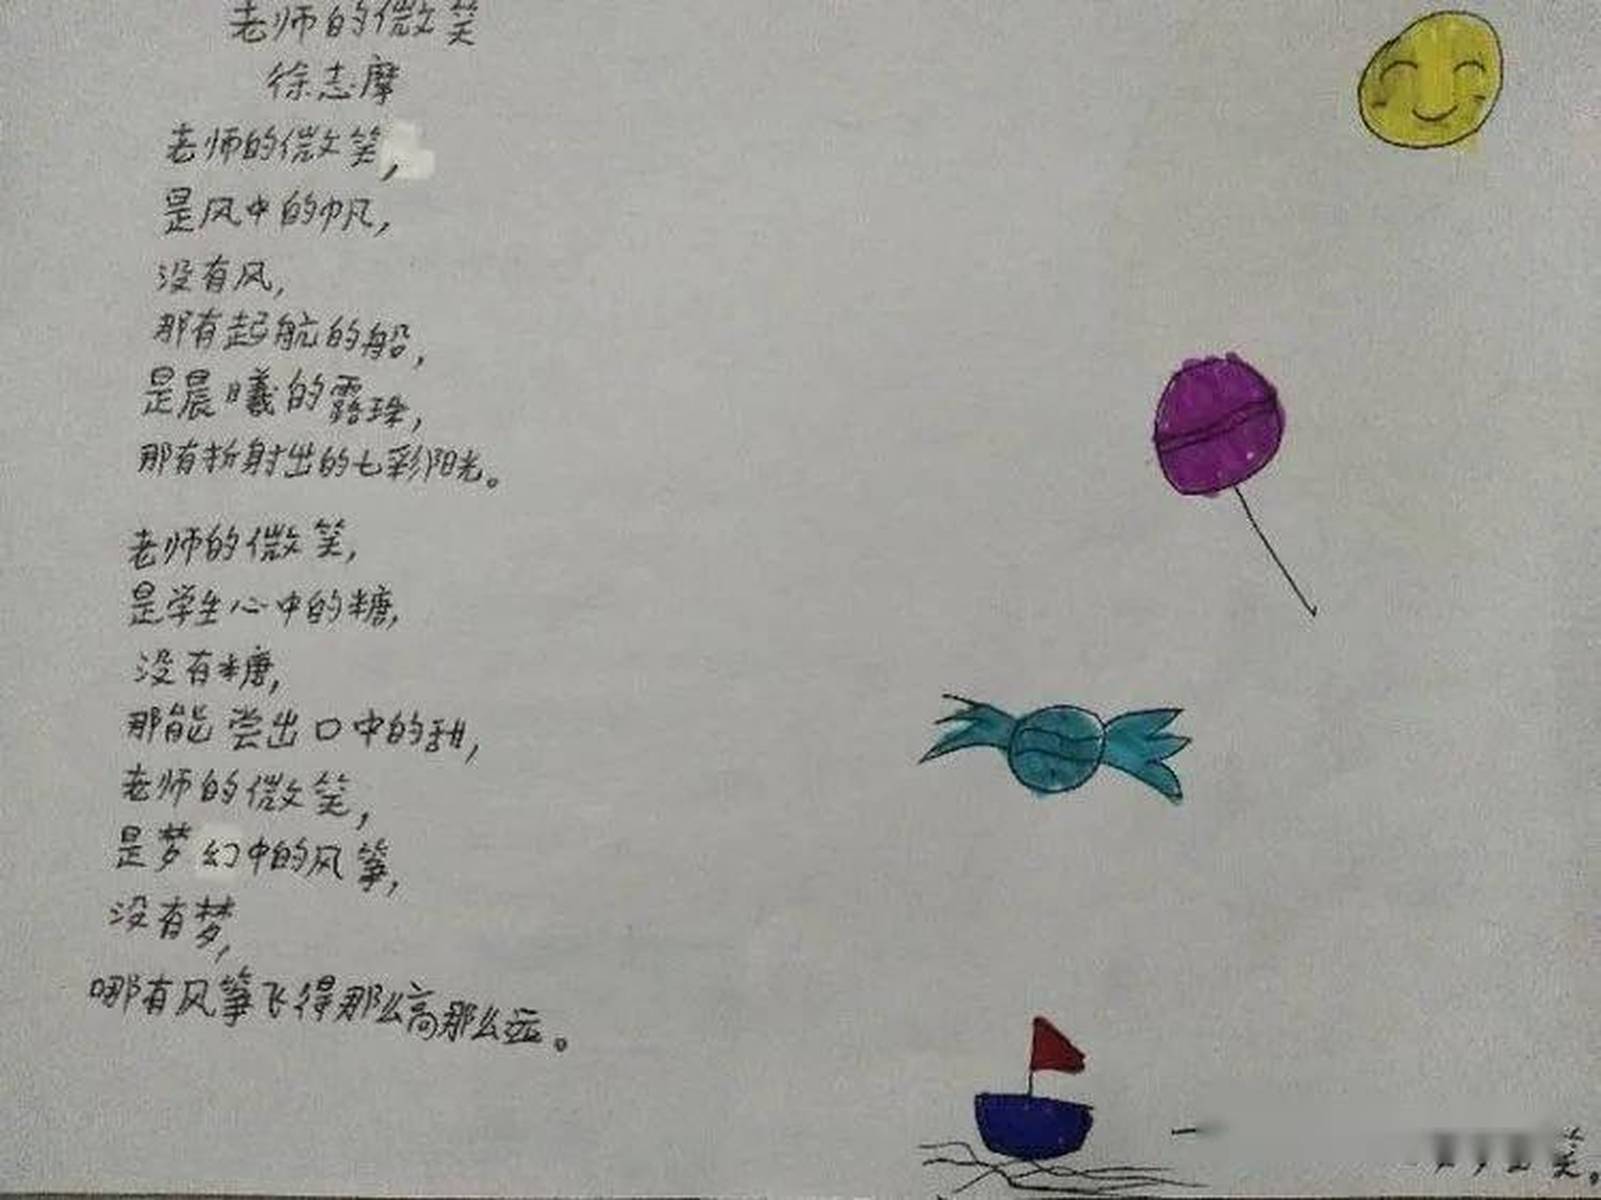 老师的微笑
徐志摩
老师的微笑,
是风中的帆,
没有风,
那有起航的船,
是晨曦的露珠,
那有折射出的七彩阳光。
老师的微笑,
是学生心中的糖,
没有糖,
那能尝出口中的甜,
老师的微笑,
是梦幻中的风筝,
没有梦,
哪有风筝飞得那么高那么远。
笑。